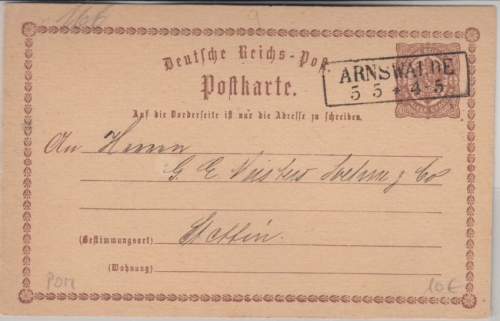 166
9
Deutsche Reichs-Post
Postkarte.
ARNSWALDE
5 5 * 4-5
Auf die Vorderseite ist nur die Adresse zu schreiben.
An Herren
G. E.  & Co
Stettin.
(Bestimmungsort)
(Wohnung)
POM
10€